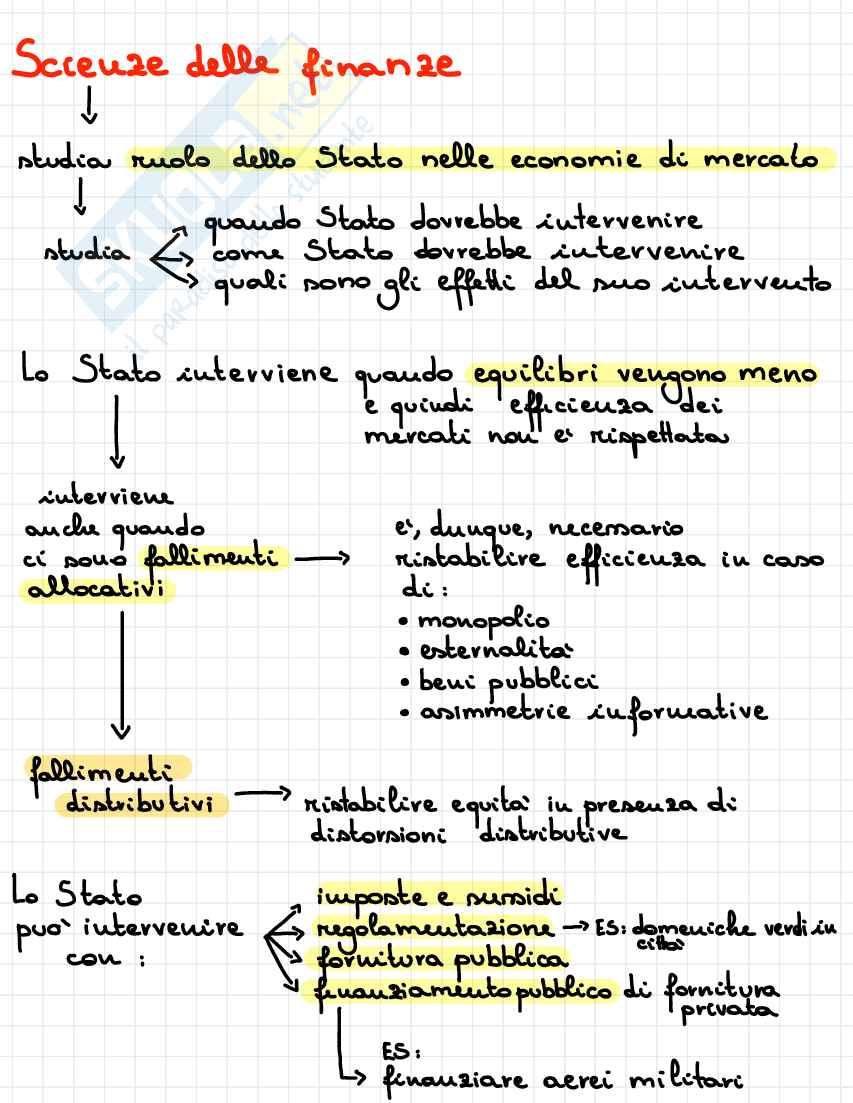 Scienze delle finanze
studia ruolo dello Stato nelle economie di mercato
studia
quando Stato dovrebbe intervenire
come Stato dovrebbe intervenire
quali sono gli effetti del suo intervento
Lo Stato interviene quando equilibri vengono meno
e quindi efficienza dei
mercati non è rispettata
interviene
anche quando
ci sono fallimenti
allocativi
è, dunque, necessario
ristabilire efficienza in caso
di:
• monopolio
• esternalità
• beni pubblici
• asimmetrie informative
fallimenti
distributivi
ristabilire equità in presenza di
distorsioni distributive
Lo Stato
può intervenire
con:
imposte e sussidi
regolamentazione → ES: domeniche verdi in
città
fornitura pubblica
finanziamento pubblico di fornitura
privata
ES:
finanziare aerei militari
SKUOLA.net
il paradiso dello studente